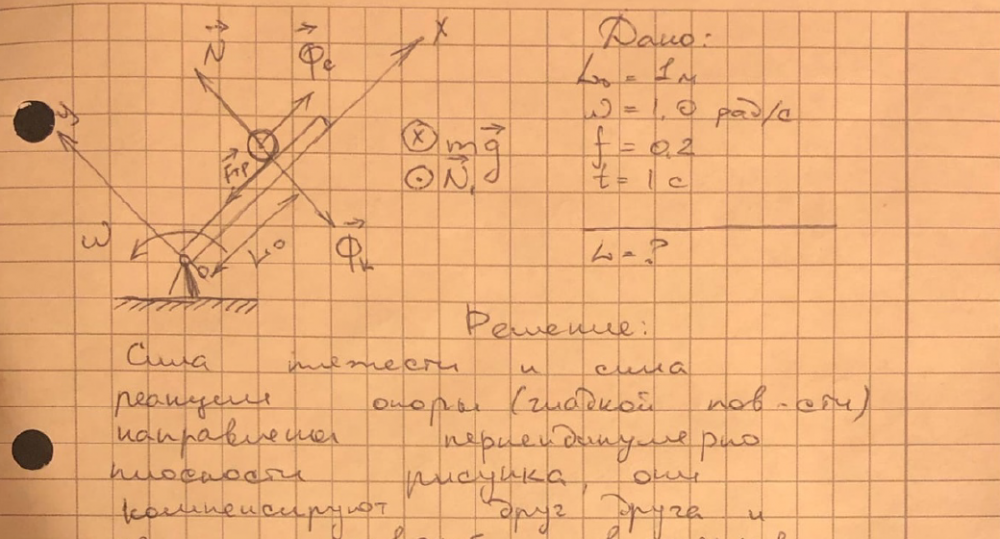 N
Фc
X
y
Fтр
ω
L₀
0
Фк
mg
N₁
Дано:
L₀ = 1 м
ω = 1.0 рад/с
f = 0.2
t = 1 с
L = ?
Решение:
Сила тяжести и сила
реакции опоры (гладкой пов-сти)
направлены перпендикулярно
плоскости рисунка, они
компенсируют друг друга и